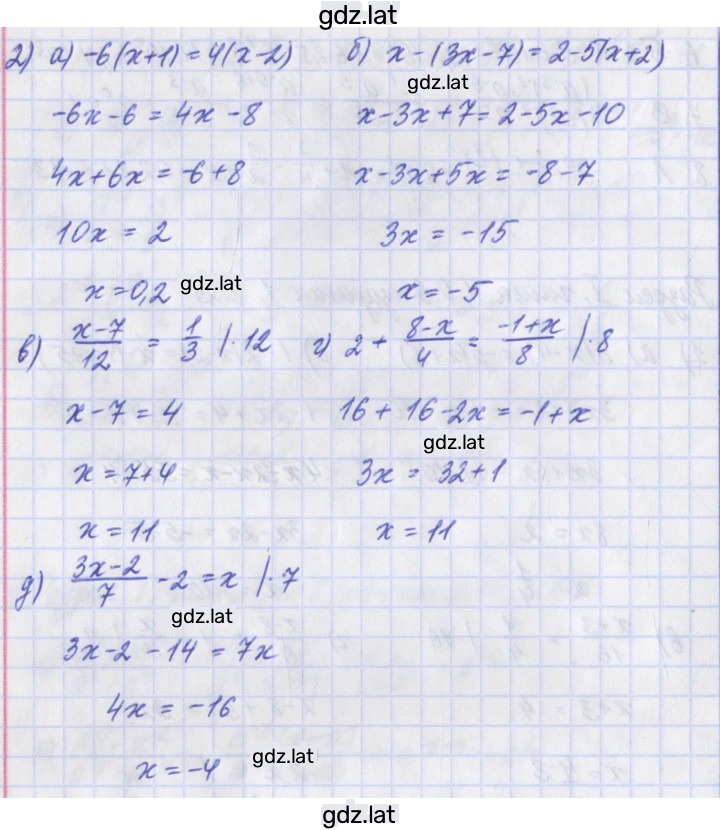 gdz.lat
2) а) -6(x+1) = 4(x-2) б) x - (3x-7) = 2-5(x+2)
gdz.lat
-6x-6 = 4x-8 x-3x+7 = 2-5x-10
4x+6x = -6+8 x-3x+5x = -8-7
10x = 2 3x = -15
x = 0,2 gdz.lat x = -5
в) (x-7)/12 = 1/3 |·12 г) 2 + (8-x)/4 = (-1+x)/8 |·8
x-7 = 4 16+16-2x = -1+x
gdz.lat
x = 7+4 3x = 32+1
x = 11 x = 11
д) (3x-2)/7 - 2 = x |·7
gdz.lat
3x-2-14 = 7x
4x = -16
x = -4 gdz.lat
gdz.lat